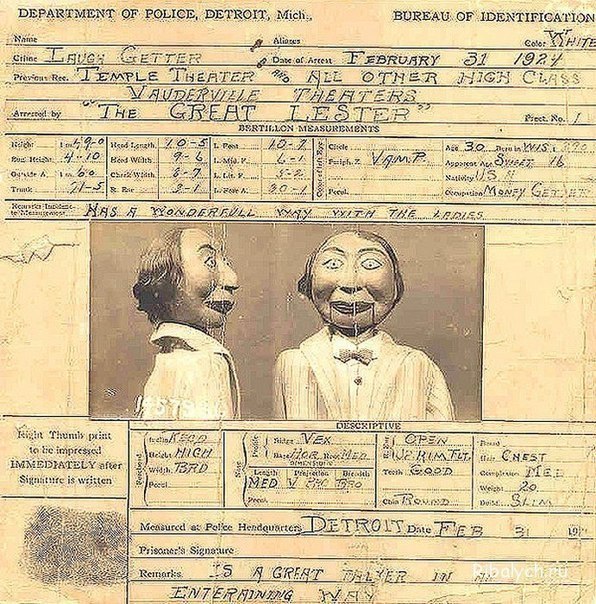 DEPARTMENT OF POLICE, DETROIT, Mich., BUREAU OF IDENTIFICATION
Name Aliases Color WHITE
Crime LAUGH GETTER Date of Arrest FEBRUARY 31 1924
Previous Rec. TEMPLE THEATER AND ALL OTHER HIGH CLASS
VAUDERVILLE THEATERS
Arrested by "THE GREAT LESTER" Prect. No. 1
BERTILLON MEASUREMENTS
Height Head Length 10-5 L. Foot 10-7 Circle Age 30 Born in WIS.
Eng. Height 4-10 Head Width 9-6 L. Mid. F. 6-1 Periph. Z. VAMP. Apparent Age SWEET 16
Outside A. Cheek Width 8-7 L. Lit. F. 5-2 Nativity
Trunk 71-5 R. Ear 2-1 L. Fore A. 20-1 Pecul. Occupation MONEY GETTER
Remarks Incident to Measurement HAS A WONDERFULL WAY WITH THE LADIES
DESCRIPTIVE
Right Thumb print
to be impressed
IMMEDIATELY after
Signature is written
Ridge VEX OPEN
Height HIGH Base HOR. Root MED Hair CHEST
Width BRD DIMENSIONS Teeth GOOD Complexion MED
Length Projection Breadth Weight 20
Pecul. MED Chin ROUND Build SLIM
Pecul.
Measured at Police Headquarters DETROIT Date FEB 31 19
Prisoner's Signature
Remarks IS A GREAT TALKER IN AN
ENTERAINING WAY
Ribalych.ru